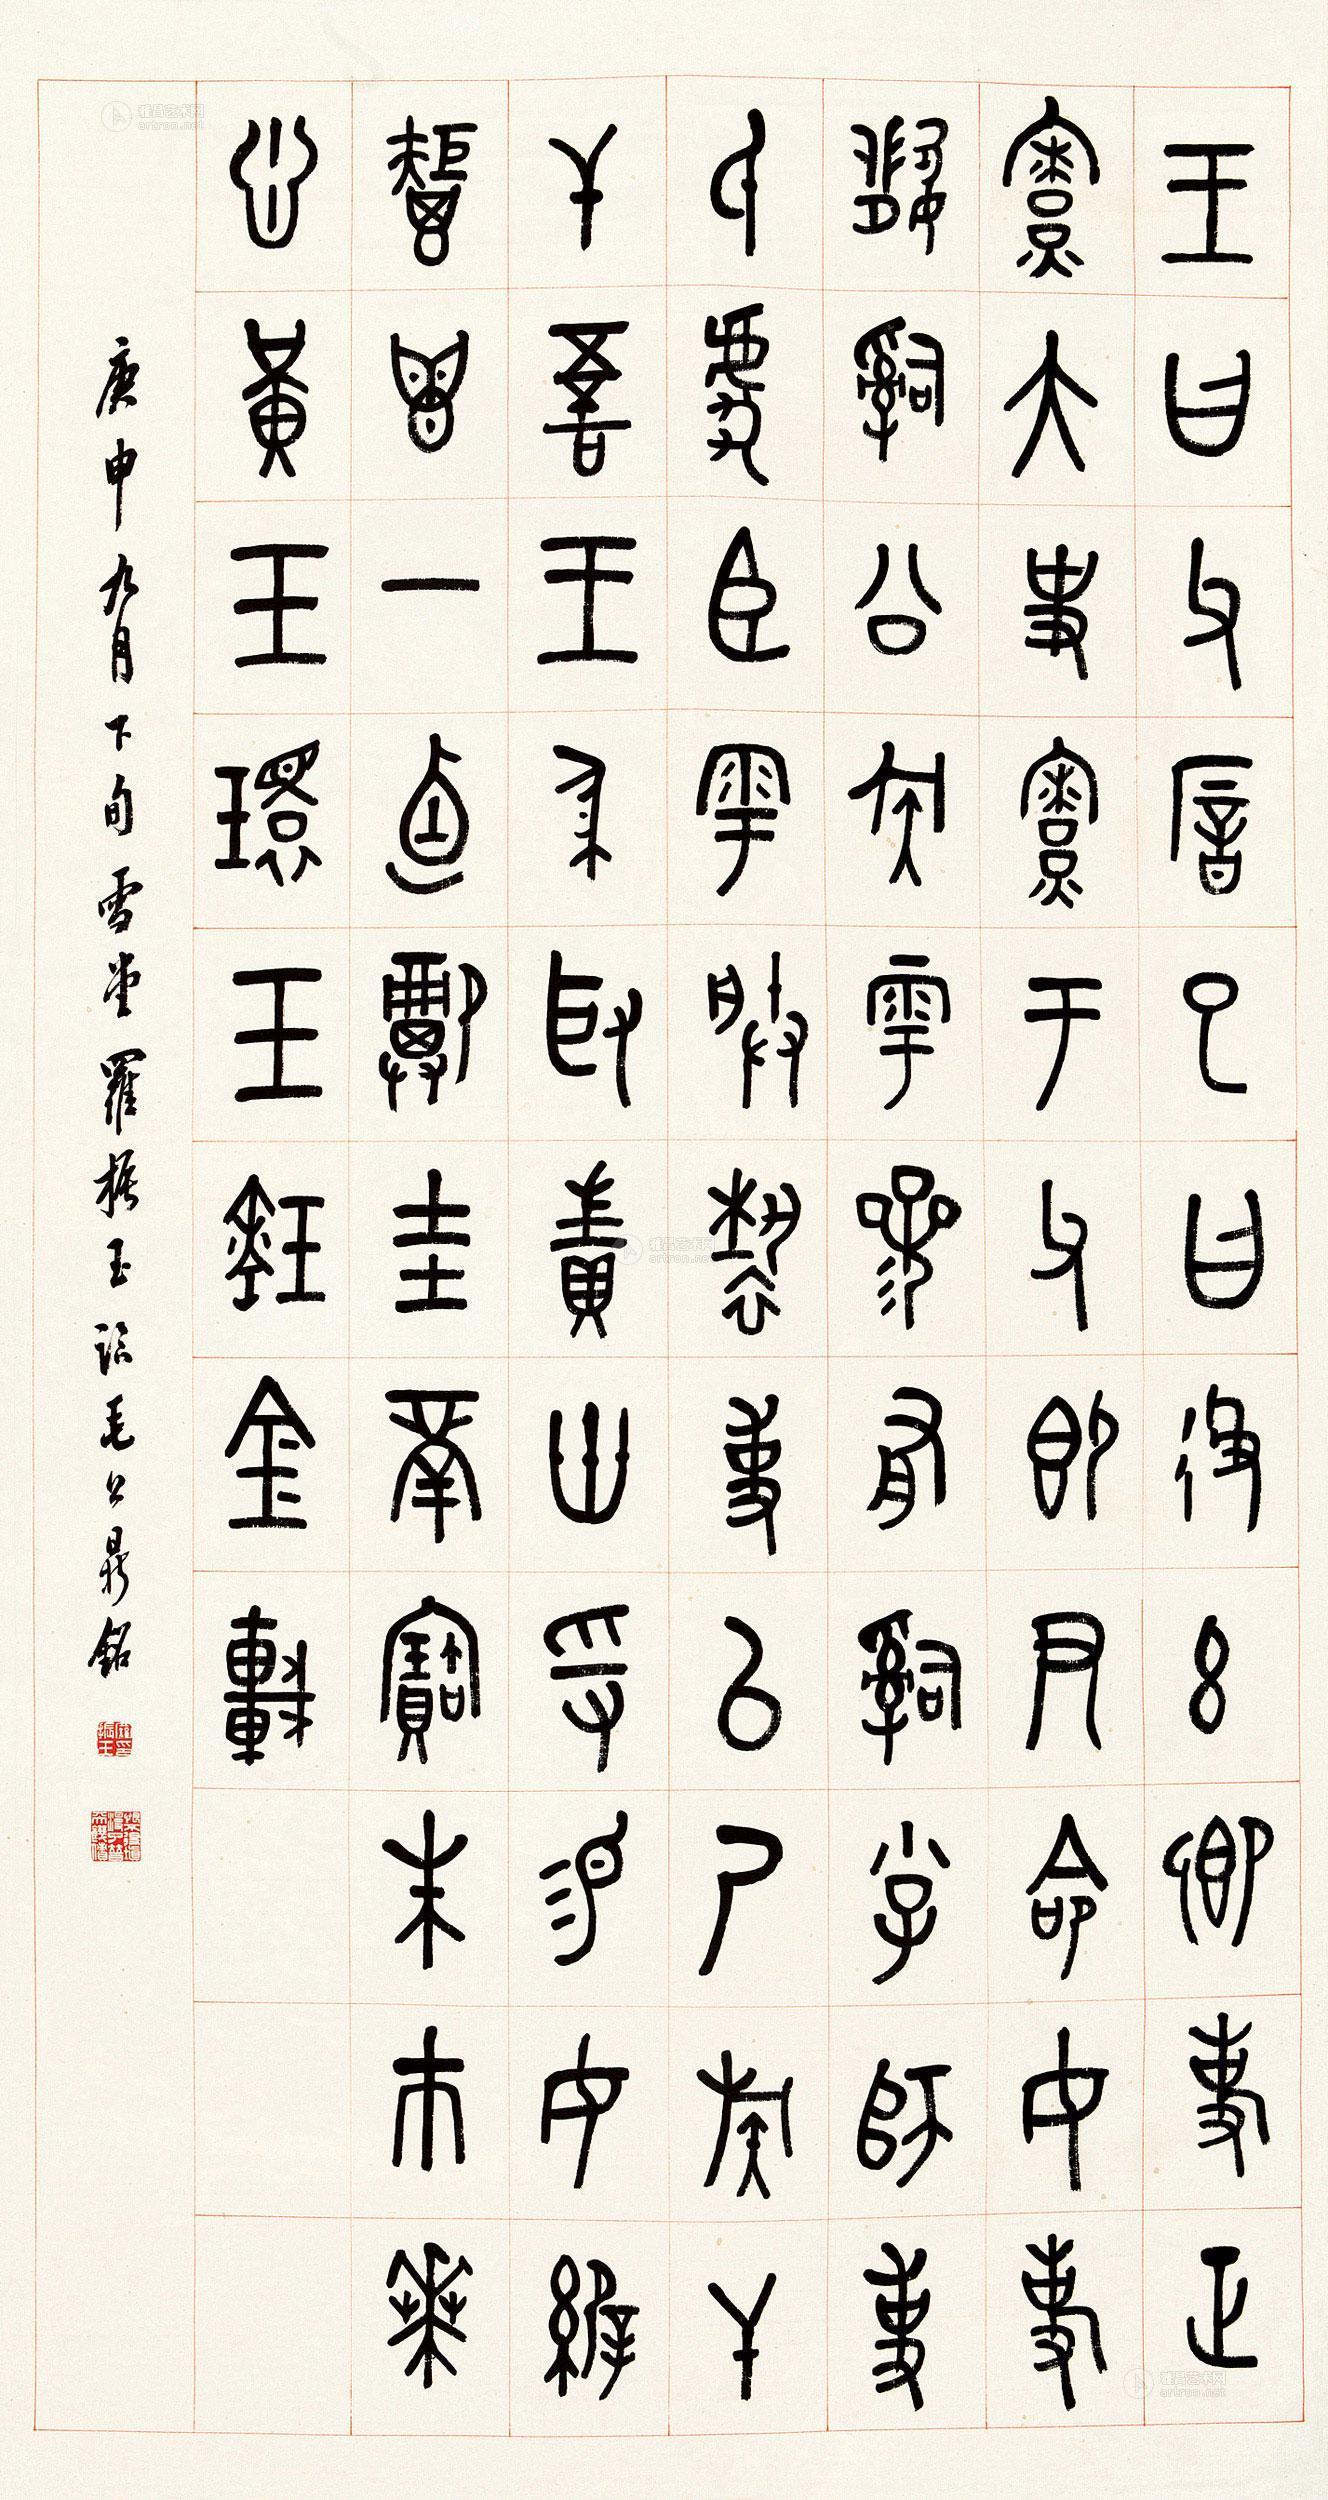 王曰父厝巳曰彶茲卿事
寮大史寮于父即尹命女
司公族雩參有司小子師事
氏虎臣雩朕褻事以乃族干
干吾王身取責卅寽易女
秬鬯一卣祼圭瓚寶朱市
悤黃玉環玉瑹金車
庚申九月下旬雪堂羅振玉臨毛公鼎銘
雅昌艺术网
artron.net